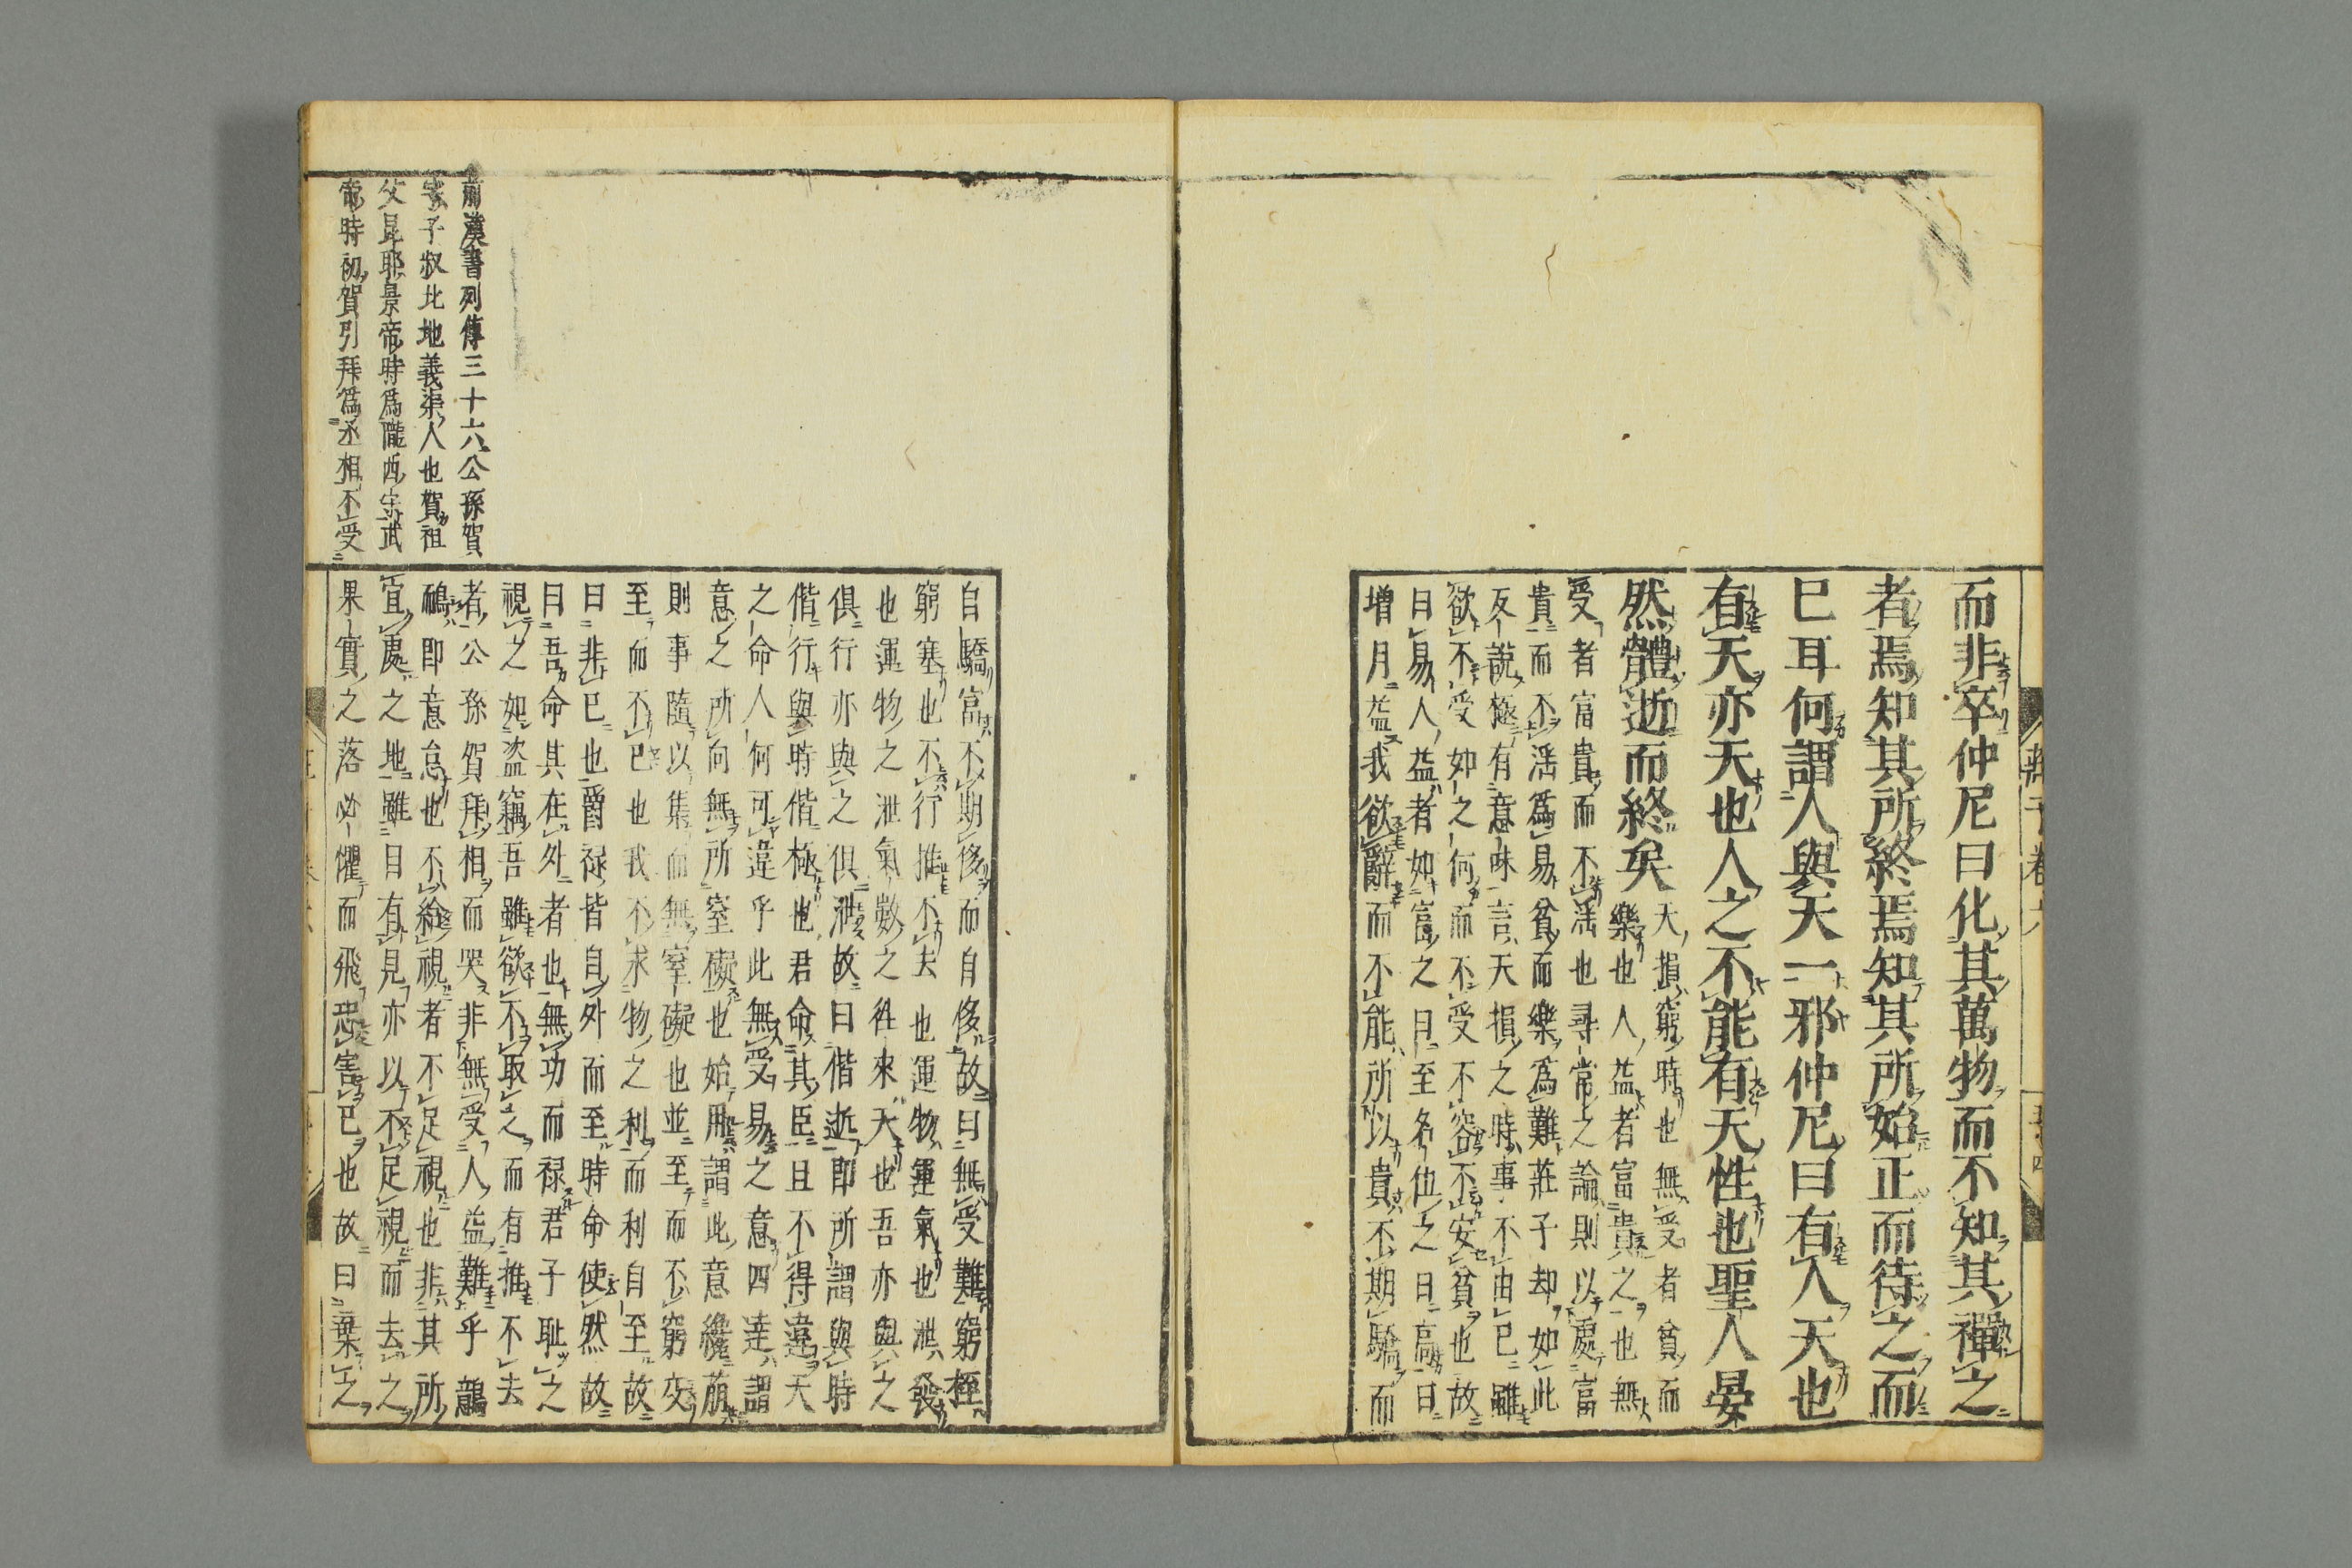 而非卒仲尼曰化其萬物而不知其禪之
者焉知其所終焉知其所始正而待之而
已耳何謂人與天一邪仲尼曰有人天也
有天亦天也人之不能有天性也聖人晏
然體逝而終矣
天損窮時也無受者貧而
樂也人益者富貴之也無
受者富貴而不淫也尋常之論則以處富
貴而不淫爲易貧而樂爲難莊子却如此
反說極有意味言天損之時事不由已雖
欲不受如之何而不受不容不安貧也故
曰易人益者如富之日至名位之日高日
增月益我欲辭而不能所以貴不期驕而
自驕富不期侈而自侈故曰無受難窮桎
窮塞也不行推不去也運物運氣也泄發
也運物之泄氣數之往來天也吾亦與之
俱行亦與之俱泄故曰偕逝即所謂與時
偕行與時偕極也君命其臣且不得違天
之命人何可違乎此無受易之意四達謂
意之所向無所窒礙也始用謂此意纔萌
則事隨以集而無窒礙也並至而不窮交
至而不已也我不求物之利而利自至故
曰非已也爵禄皆自外而至時命使然故
曰吾命其在外者也無功而禄君子耻之
視之如盜竊吾雖欲不取之而有推不去
者公孫賀拜相而哭非無受人益難乎鷾
鴯即意怠也不給視者不足視也非其所
宜處之地雖目有見亦以不足視而去之
果實之落必懼而飛恐害已也故曰棄之
前漢書列傳三十六公孫賀
字子叔北地義渠人也賀祖
父昆耶景帝時爲隴西守武
帝時初賀引拜爲丞相不受